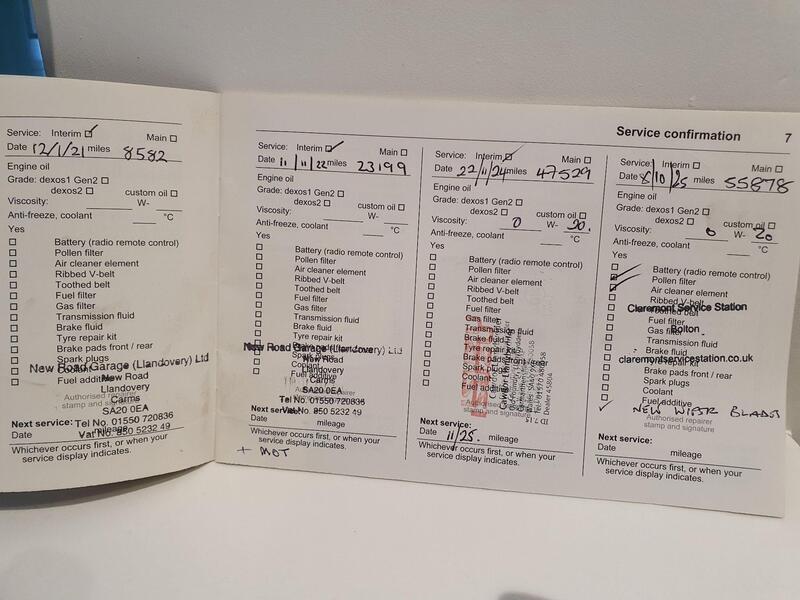 Service: Interim ☑ Main ☐
Date 12/1/21 miles 8582
Engine oil
Grade: dexos1 Gen2 ☐
dexos2 ☐ custom oil ☐
Viscosity: W-
Anti-freeze, coolant °C
Yes
☐ Battery (radio remote control)
☐ Pollen filter
☐ Air cleaner element
☐ Ribbed V-belt
☐ Toothed belt
☐ Fuel filter
☐ Gas filter
☐ Transmission fluid
☐ Brake fluid
☐ Tyre repair kit
☐ Brake pads front / rear
☐ Spark plugs
New Road Garage (Llandovery) Ltd
☐ Coolant
New Road
☐ Fuel additive
Llandovery
Authorised repairer
Carms
stamp and signature
SA20 0EA
Next service: Tel No. 01550 720836
Date mileage
Vat No. 850 5232 49
Whichever occurs first, or when your
service display indicates.
Service: Interim ☑ Main ☐
Date 11/11/22 miles 23199
Engine oil
Grade: dexos1 Gen2 ☐
dexos2 ☐ custom oil ☐
Viscosity: W-
Anti-freeze, coolant °C
Yes
☐ Battery (radio remote control)
☐ Pollen filter
☐ Air cleaner element
☐ Ribbed V-belt
☐ Toothed belt
☐ Fuel filter
☐ Gas filter
☐ Transmission fluid
☐ Brake fluid
☐ Tyre repair kit
☐ Brake pads front / rear
New Road Garage (Llandovery) Ltd
☐ Spark plugs
New Road
☐ Coolant
Llandovery
☐ Fuel additive
Carms
SA20 0EA
Tel No. 01550 720836
Next service:
Vat No. 850 5232 49
Date mileage
Whichever occurs first, or when your
service display indicates.
+ MOT
Service confirmation 7
Service: Interim ☑ Main ☐
Date 22/11/24 miles 47529
Engine oil
Grade: dexos1 Gen2 ☐
dexos2 ☐ custom oil ☐
Viscosity: 0 W- 20.
Anti-freeze, coolant °C
Yes
☐ Battery (radio remote control)
☐ Pollen filter
☐ Air cleaner element
☐ Ribbed V-belt
☐ Toothed belt
☐ Fuel filter
☐ Gas filter
☐ Transmission fluid
☐ Brake fluid
☐ Tyre repair kit
☐ Brake pads front / rear
☐ Spark plugs
☐ Coolant
☐ Fuel additive
Authorised repairer
stamp and signature
Next service:
Date 11/25. mileage
Whichever occurs first, or when your
service display indicates.
Service: Interim ☐ Main ☐
Date 8/10/25 miles 55878
Engine oil
Grade: dexos1 Gen2 ☐
dexos2 ☐ custom oil ☐
Viscosity: 0 W- 20
Anti-freeze, coolant °C
Yes
☐ Battery (radio remote control)
☑ Pollen filter
☑ Air cleaner element
☐ Ribbed V-belt
☐ Toothed belt
Claremont Service Station
☐ Fuel filter
Bolton
☐ Gas filter
☐ Transmission fluid
☐ Brake fluid
claremontservicestation.co.uk
☐ Tyre repair kit
☐ Brake pads front / rear
☐ Spark plugs
☐ Coolant
☐ Fuel additive
✓ NEW WIPER BLADES
Authorised repairer
stamp and signature
Next service:
Date mileage
Whichever occurs first, or when your
service display indicates.